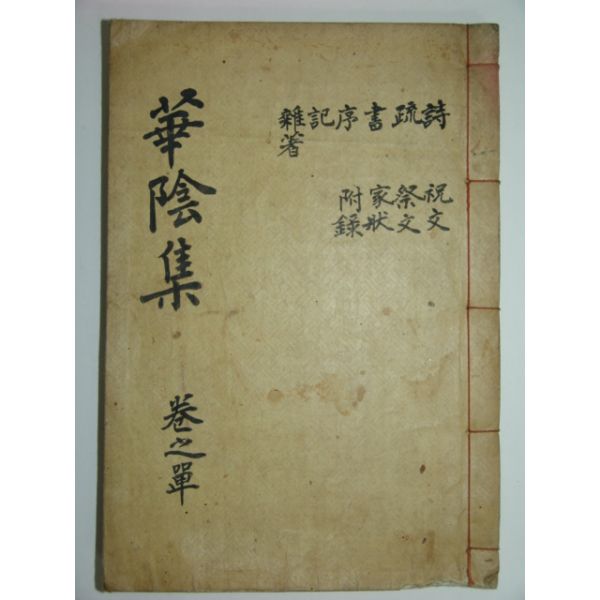 詩
疏
書
序
記
雜著
祝文
祭文
家狀
附錄
華陰集
卷之單